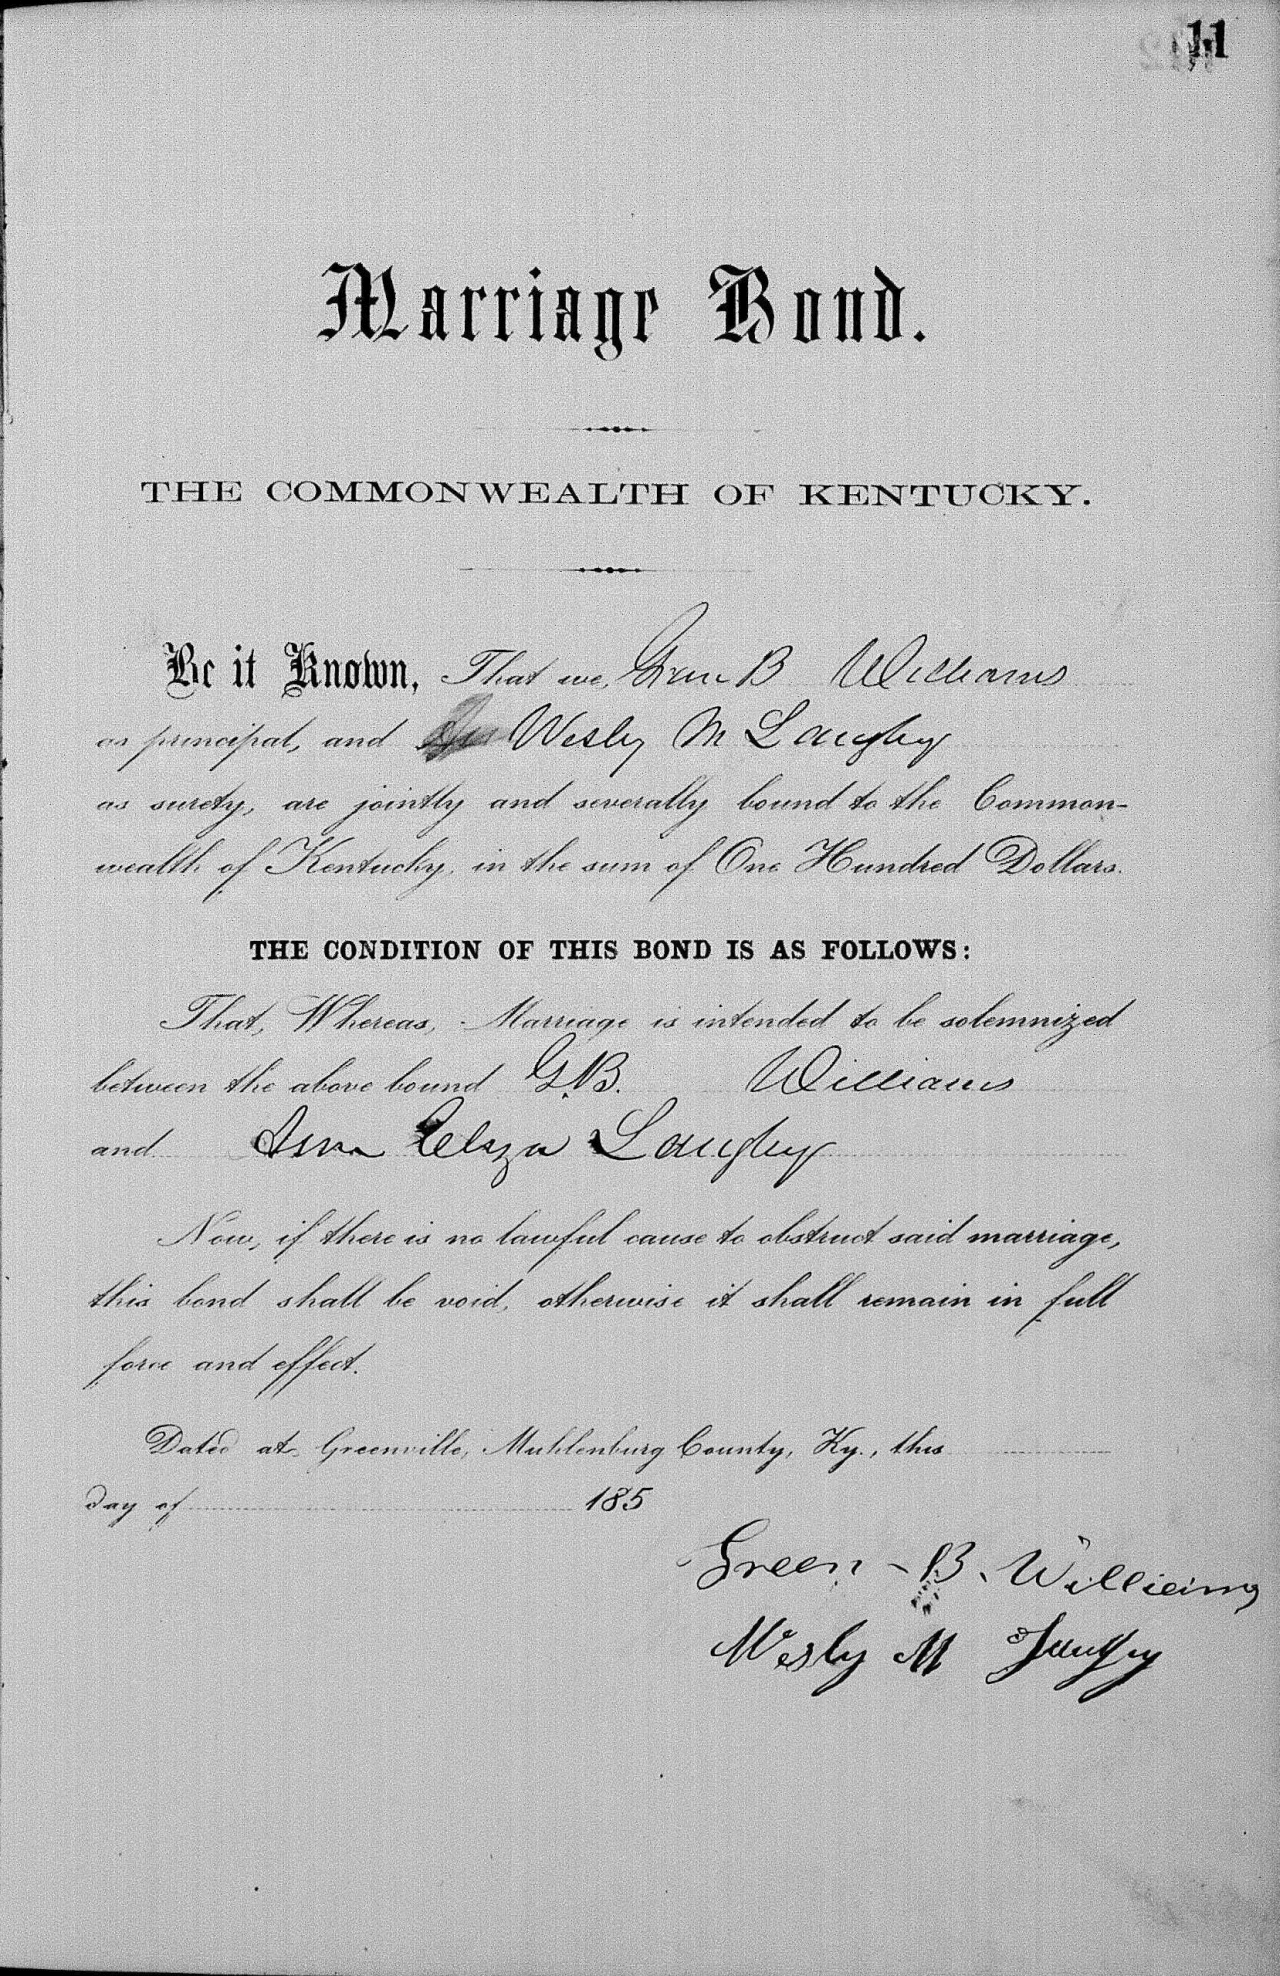 11
Marriage Bond.
THE COMMONWEALTH OF KENTUCKY.
Be it Known, That we, Green B Williams
as principal, and Wesly M Langley
as surety, are jointly and severally bound to the Common-
wealth of Kentucky, in the sum of One Hundred Dollars.
THE CONDITION OF THIS BOND IS AS FOLLOWS:
That, Whereas, Marriage is intended to be solemnized
between the above bound G.B. Williams
and Ann Eliza Langley
Now, if there is no lawful cause to obstruct said marriage,
this bond shall be void, otherwise it shall remain in full
force and effect.
Dated at Greenville, Muhlenburg County, Ky., this
day of 185
Green - B. Williams
Wesly M